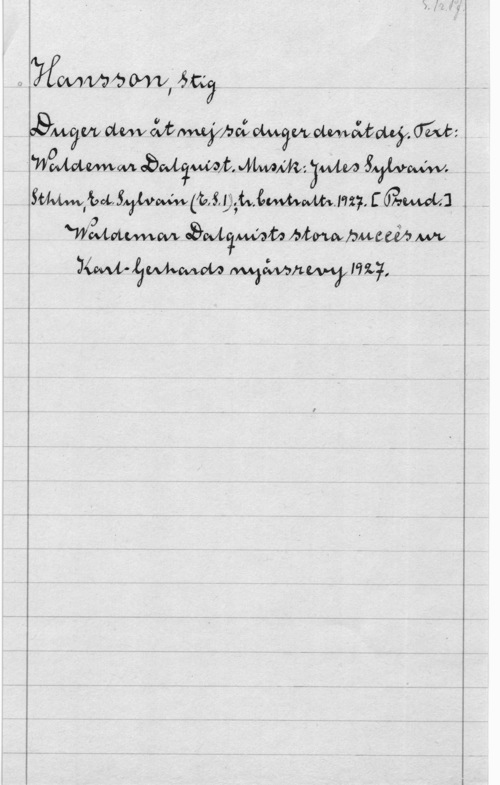 Hansson, Stig
Duger den åt mej, så duger den åt dej. Text:
Waldemar Dalquist. Musik: Jules Sylvain.
Sthlm, Ed. Sylvain (E.S.1); tr. Centraltr. 1927. [Pseud.]
Waldemar Dalquists stora succès ur
Karl-Gerhards nyårsrevy 1927.